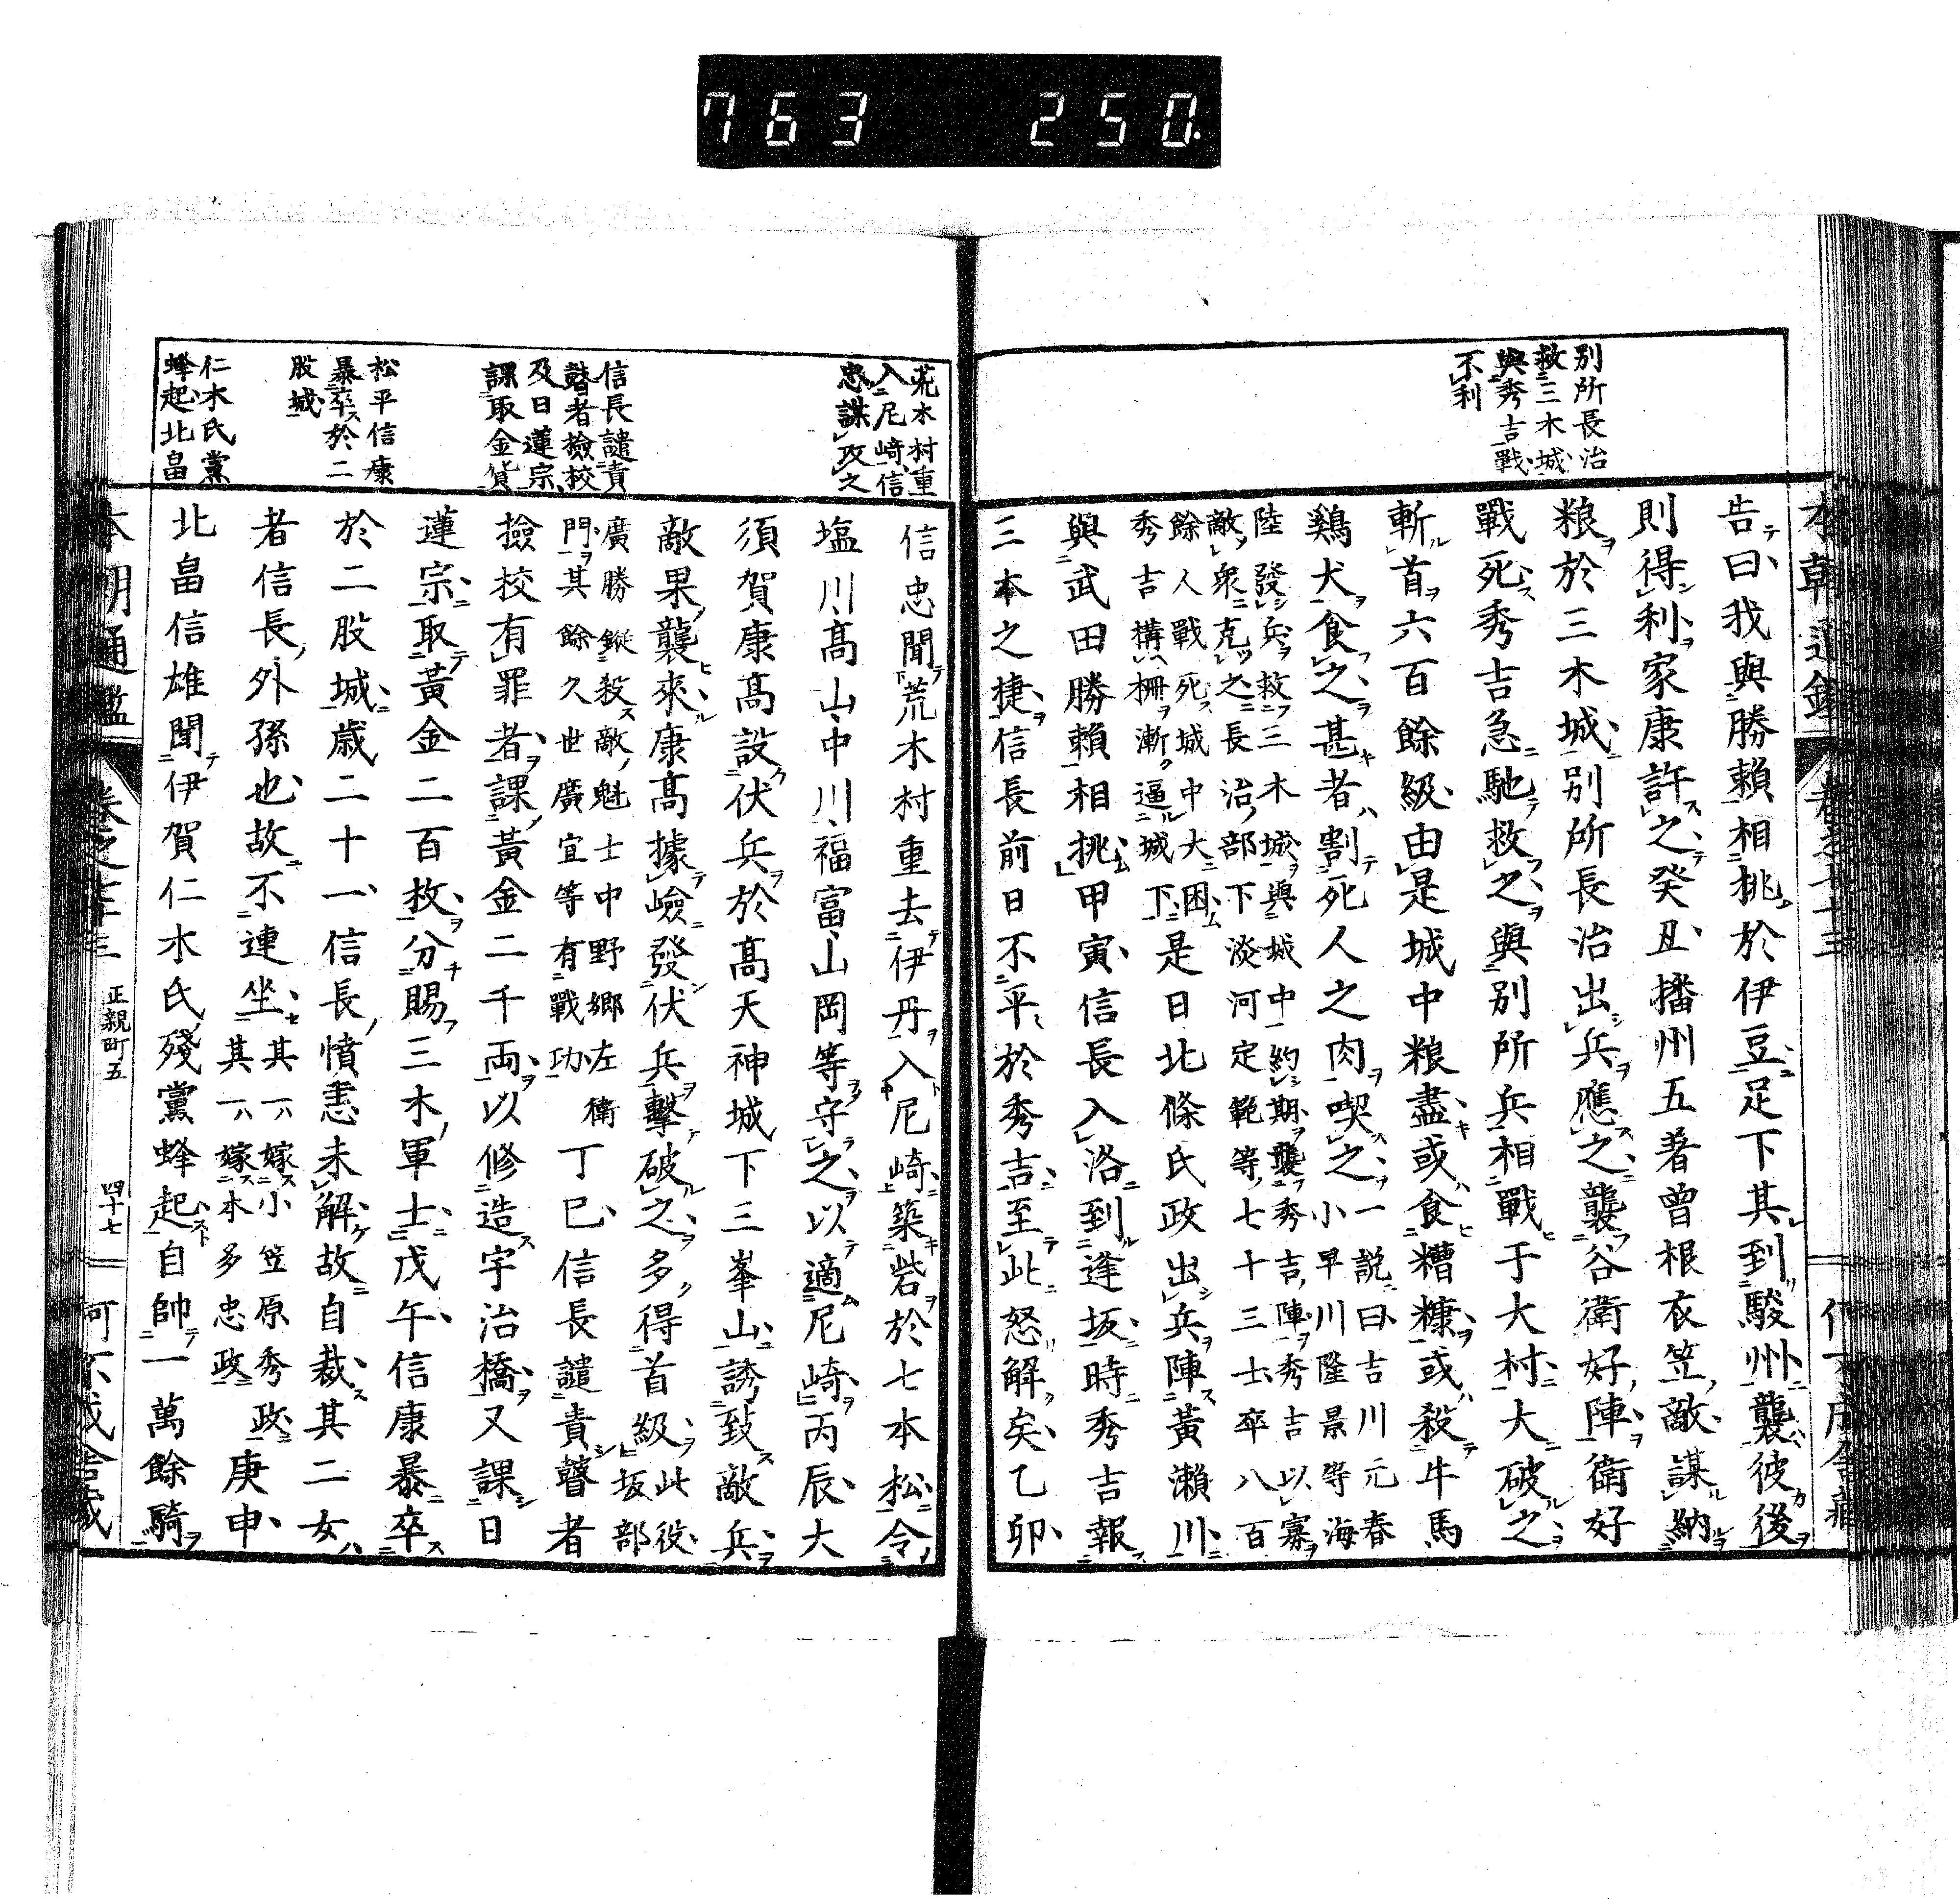 763 250
別所長治
救三木城
與秀吉戰
不利
告曰我與勝賴相挑於伊豆足下其到駿州襲彼後
則得利家康許之癸丑播州五著曾根衣笠敵謀納
粮於三木城別所長治出兵應之襲谷衛好陣衛好
戰死秀吉急馳救之與別所兵相戰于大村大破之
斬首六百餘級由是城中粮盡或食糟糠或殺牛馬
鷄犬食之甚者割死人之肉喫之一說曰吉川元春小早川隆景等海
陸發兵救三木城與城中約期襲秀吉陣秀吉以寡
敵衆克之長治部下淡河定範等七十三士卒八百
餘人戰死城中大困
秀吉構柵漸逼城下是日北條氏政出兵陣黃瀨川
與武田勝賴相挑甲寅信長入洛到逢坂時秀吉報
三木之捷信長前日不平於秀吉至此怒解矣乙卯
荒木村重
入尼崎信
忠謀攻之
信長譴責
瞽者撿校
及日蓮宗
課取金貨
松平信康
暴卒於二
股城
仁木氏黨
蜂起北畠
信忠聞荒木村重去伊丹入尼崎築砦於七本松令
塩川高山中川福富山岡等守之以適尼崎丙辰大
須賀康高設伏兵於高天神城下三峯山誘致敵兵
敵果襲來康高據嶮發伏兵擊破之多得首級此役坂部
廣勝鏦殺敵魁士中野鄉左衛
門其餘久世廣宜等有戰功
丁巳信長譴責瞽者
撿校有罪者課黃金二千兩以修造宇治橋又課日
蓮宗取黃金二百枚分賜三木軍士戊午信康暴卒
於二股城歲二十一信長憤恚未解故自裁其二女
者信長外孫也故不連坐其一嫁小笠原秀政其一嫁本多忠政庚申
北畠信雄聞伊賀仁木氏殘黨蜂起自帥一萬餘騎
正親町五
四十七